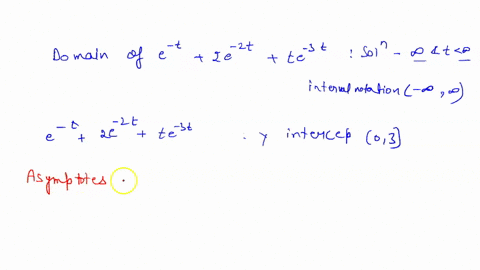 Domain of e^{-t} + 2e^{-2t} + te^{-3t} : Sol^n - ∞ < t < ∞
interval notation (-∞, ∞)
e^{-t} + 2e^{-2t} + te^{-3t} . y intercep (0,3]
Asymptotes :